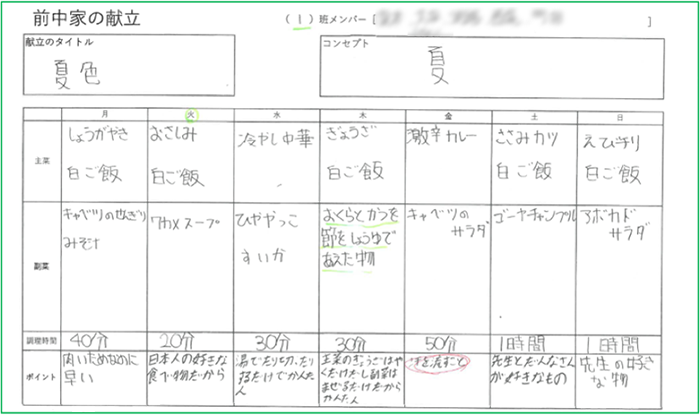 前中家の献立
(1)班メンバー[ ]
献立のタイトル
夏色
コンセプト
夏
月 火 水 木 金 土 日
主菜
しょうがやき
白ご飯
おさしみ
白ご飯
冷やし中華
ぎょうざ
白ご飯
激辛カレー
ささみカツ
白ご飯
えびチリ
白ご飯
副菜
キャベツのせんぎり
みそ汁
ワカメスープ
ひややっこ
すいか
おくらとかつを
節をしょうゆで
あえた物
キャベツの
サラダ
ゴーヤチャンプル
アボカド
サラダ
調理時間 40分 20分 30分 30分 50分 1時間 1時間
ポイント
肉いためなのに
早い
日本人の好きな
食べ物だから
湯でたり切ったり
するだけでかんた
ん
主菜のぎょうざはや
くだけだし副菜は
まぜるだけだから
かんたん
汗を流すこと
先生とだんなさん
が好きなもの
先生の好き
な物